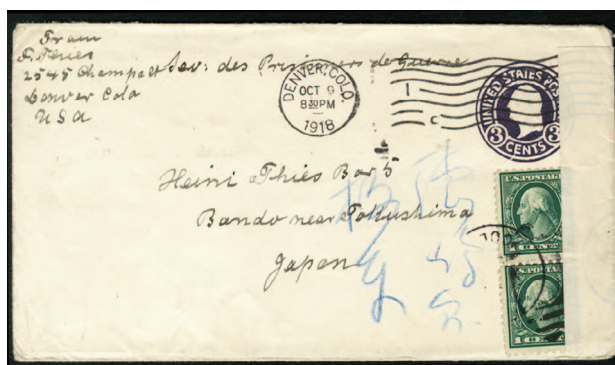 From
F. Thies
2545 Champa st
Denver Colo
USA
Serv: des Prisonniers de Guerre
DENVER, COLO.
OCT 9
8 30 PM
1918
C
UNITED STATES POS
3 CENTS 3
Heini Thies Bar 5
Bando near Tokushima
Japan
U.S. POSTAGE
1 CENT
U.S. POSTAG
1 CENT